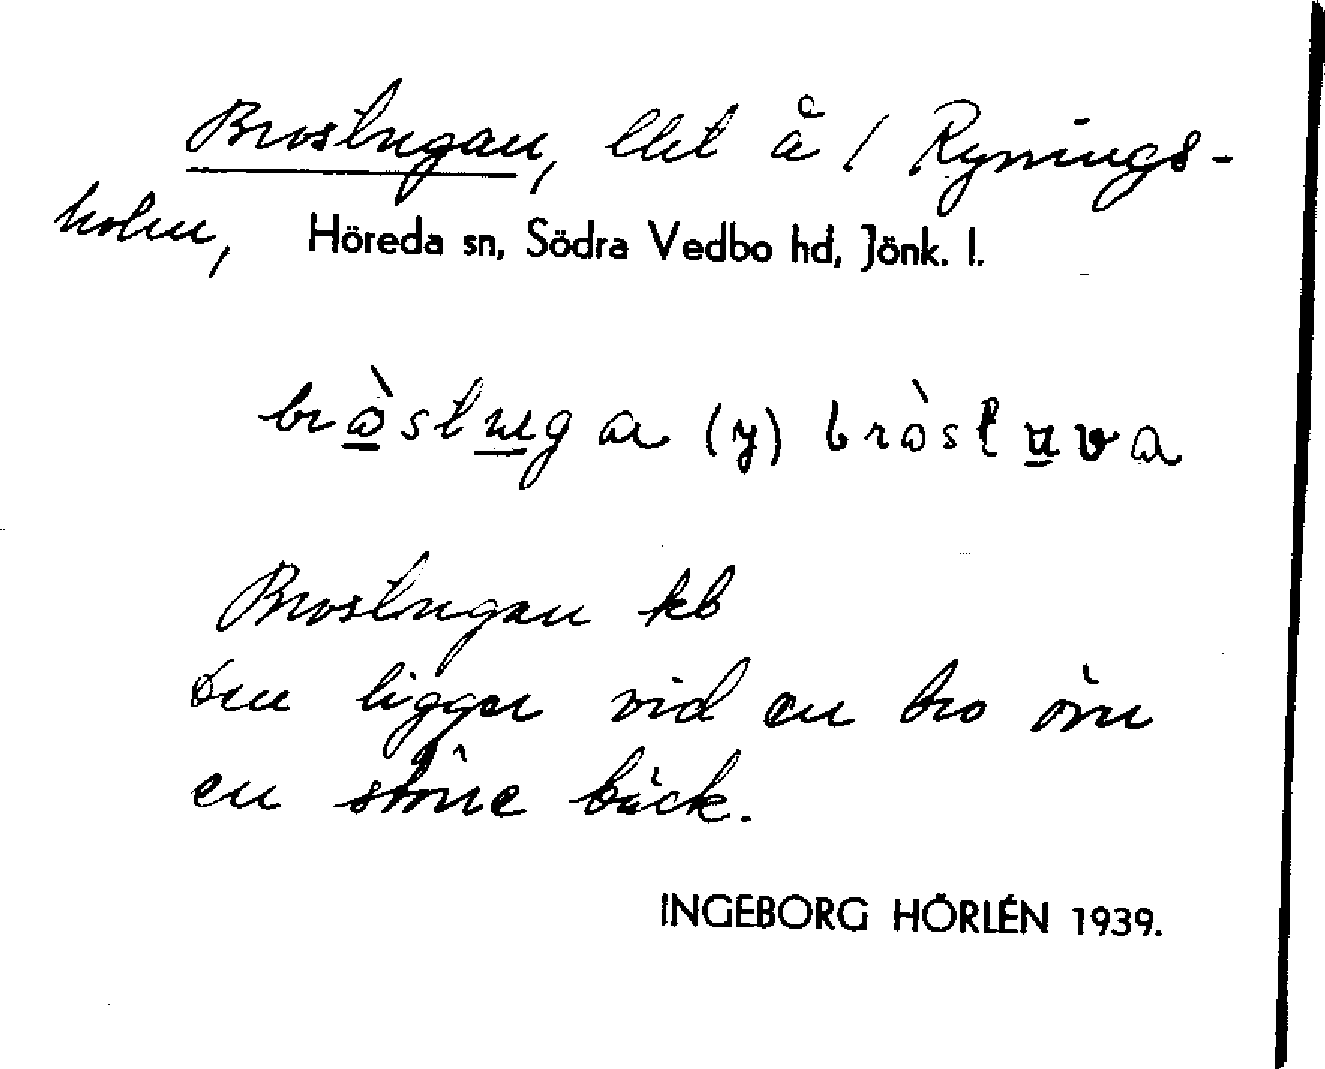 Brostugan, llet å / Rynings-
holm, Höreda sn, Södra Vedbo hd, Jönk. l.
bròstuga (y) bròstuva
Brostugan kb
Den ligger vid en bro över
en större bäck.
INGEBORG HÖRLÉN 1939.